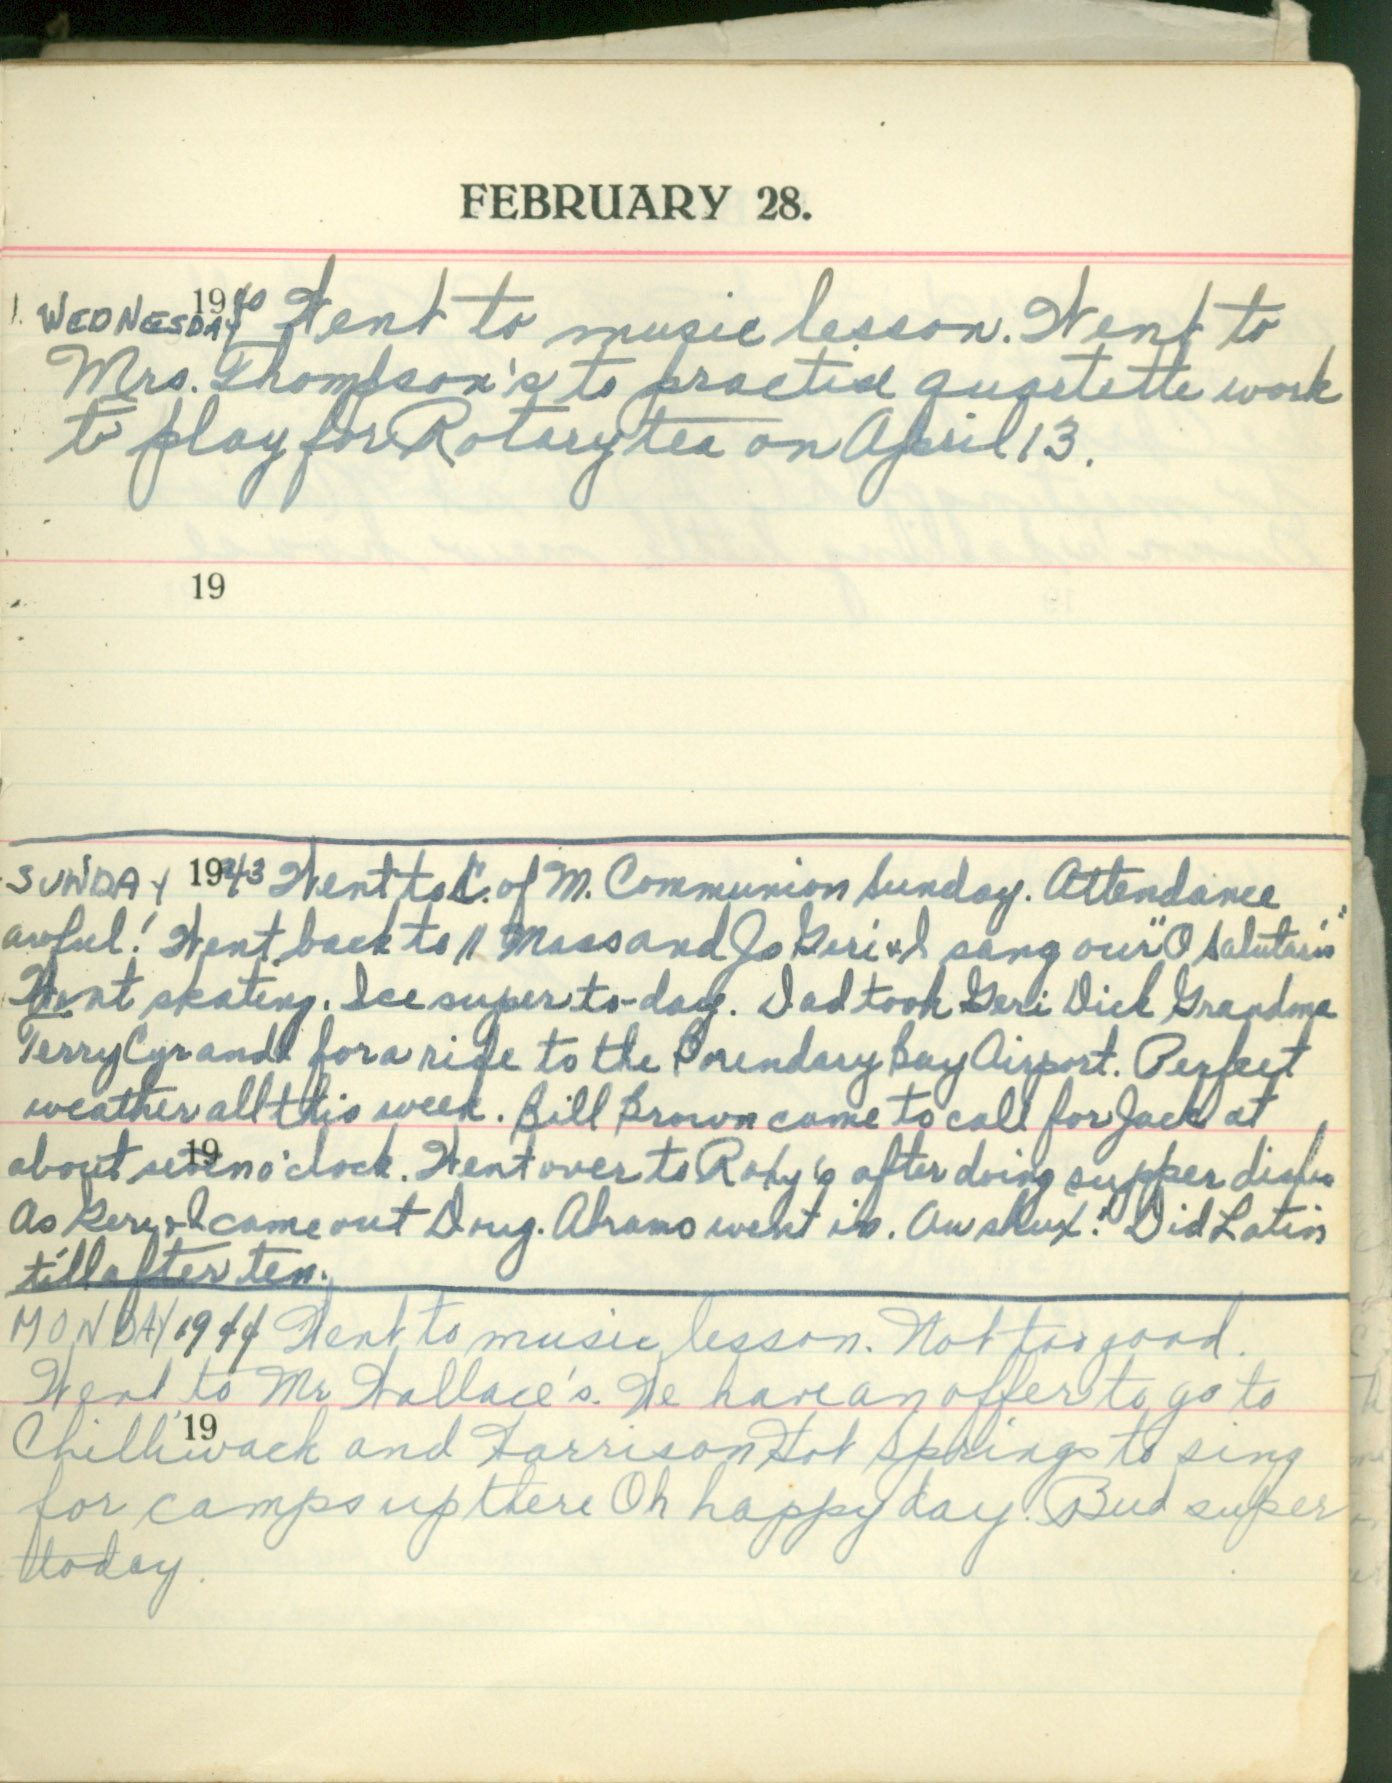 FEBRUARY 28.
WEDNESDAY 1940 Went to music lesson. Went to
Mrs. Thompson's to practise quartette work
to play for Rotary tea on April 13.
19
SUNDAY 1943 Went to C. of M. Communion Sunday. Attendance
awful! Went back to 11 Mass and Jo Geri & I sang our "O Salutaris"
Went skating. Ice super to-day. Dad took Geri Dick Grandma
Terry Cyr and I for a ride to the Boundary Bay Airport. Perfect
weather all this week. Bill Brown came to call for Jack at
19
about seven o'clock. Went over to Roxy's after doing supper dishes
As Gery & I came out Doug. Abrams went in. Aw shux! Did Latin
till after ten.
MONDAY 1944 Went to music lesson. Not too good.
Went to Mr Wallace's. We have an offer to go to
19
Chilliwack and Harrison Hot Springs to sing
for camps up there Oh happy day. Bud super
today.